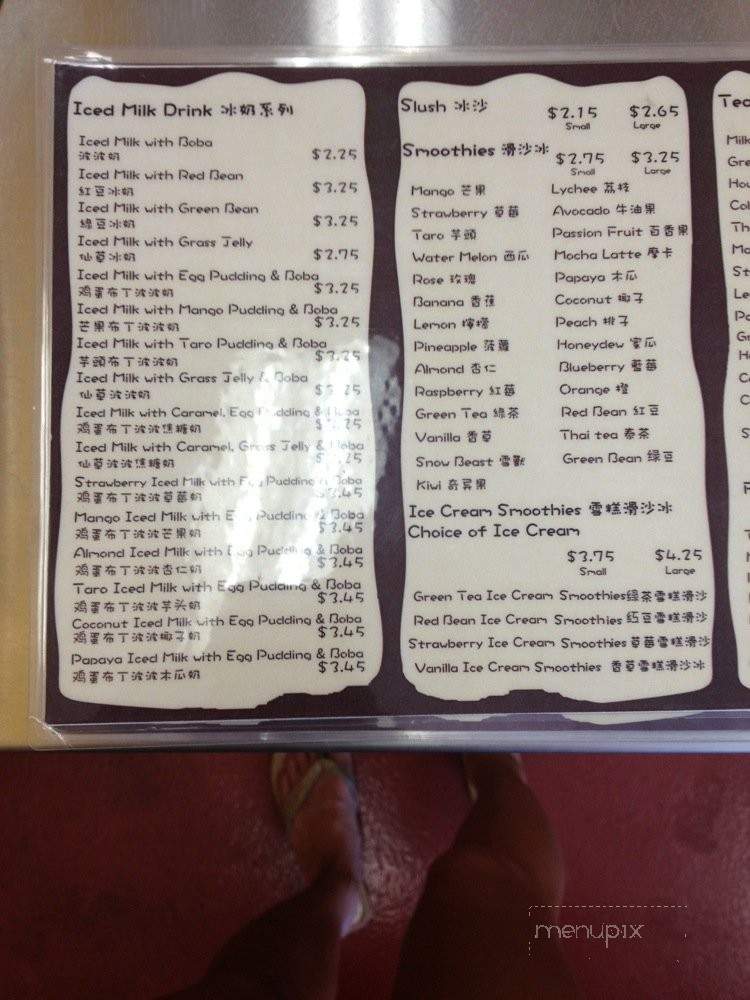 Iced Milk Drink 冰奶系列
Iced Milk with Boba
波波奶 $2.25
Iced Milk with Red Bean
紅豆冰奶 $3.25
Iced Milk with Green Bean
綠豆冰奶 $3.25
Iced Milk with Grass Jelly
仙草冰奶 $2.75
Iced Milk with Egg Pudding & Boba
鸡蛋布丁波波奶 $3.25
Iced Milk with Mango Pudding & Boba
芒果布丁波波奶 $3.25
Iced Milk with Taro Pudding & Boba
芋頭布丁波波奶 $3.25
Iced Milk with Grass Jelly & Boba
仙草波波奶
Iced Milk with Caramel, Egg Pudding & Boba
鸡蛋布丁波波焦糖奶
Iced Milk with Caramel, Grass Jelly & Boba
仙草波波焦糖奶
Strawberry Iced Milk with Egg Pudding & Boba
鸡蛋布丁波波草莓奶 $3.45
Mango Iced Milk with Egg Pudding & Boba
鸡蛋布丁波波芒果奶 $3.45
Almond Iced Milk with Egg Pudding & Boba
鸡蛋布丁波波杏仁奶 $3.45
Taro Iced Milk with Egg Pudding & Boba
鸡蛋布丁波波芋头奶 $3.45
Coconut Iced Milk with Egg Pudding & Boba
鸡蛋布丁波波椰子奶 $3.45
Papaya Iced Milk with Egg Pudding & Boba
鸡蛋布丁波波木瓜奶 $3.45
Slush 冰沙 $2.15 $2.65
Small Large
Smoothies 滑沙冰 $2.75 $3.25
Small Large
Mango 芒果 Lychee 荔枝
Strawberry 草莓 Avocado 牛油果
Taro 芋頭 Passion Fruit 百香果
Water Melon 西瓜 Mocha Latte 摩卡
Rose 玫瑰 Papaya 木瓜
Banana 香蕉 Coconut 椰子
Lemon 檸檬 Peach 桃子
Pineapple 菠蘿 Honeydew 蜜瓜
Almond 杏仁 Blueberry 藍莓
Raspberry 紅莓 Orange 橙
Green Tea 綠茶 Red Bean 紅豆
Vanilla 香草 Thai tea 泰茶
Snow Beast 雪獸 Green Bean 绿豆
Kiwi 奇异果
Ice Cream Smoothies 雪糕滑沙冰
Choice of Ice Cream
$3.75 $4.25
Small Large
Green Tea Ice Cream Smoothies绿茶雪糕滑沙
Red Bean Ice Cream Smoothies 紅豆雪糕滑沙
Strawberry Ice Cream Smoothies 草莓雪糕滑沙
Vanilla Ice Cream Smoothies 香草雪糕滑沙冰
menupix